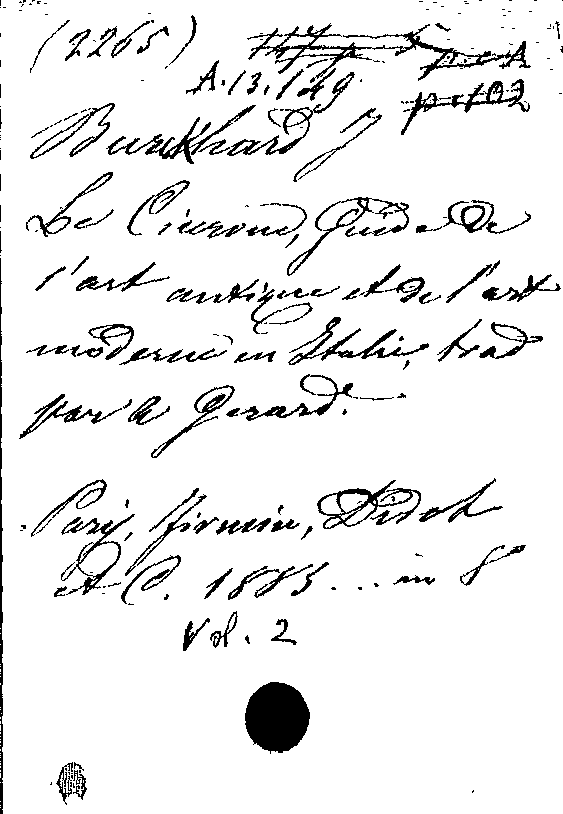 (2265)
A.13.149
p.c A
p.c 102
Burckhard J
Le Cicerone, Guide de
l'art antique et de l'art
moderne en Italie, trad
par A Gerard.
Paris, Firmin, Didot
et C. 1885... in 8°
Vol. 2